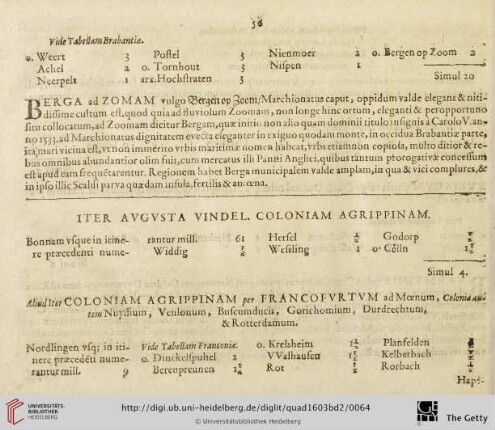 56
Vide Tabellam Brabantiæ.
o. Weert 3 Postel 3 Nienmoer 2 o. Bergen op Zoom 2
Achel 2 o. Tornhout 3 Nispen 1
Neerpelt 1 arx. Hochstraten 3 Simul 20
BERGA ad ZOMAM vulgo Bergen op Zoom/ Marchionatus caput, oppidum valde elegans & niti-
dissime cultum est, quod quia ad fluviolum Zoomam, non longe hinc ortum, eleganti & peropportuno
situ collocatum, ad Zomam dicitur Bergam, quæ initio non alio quam dominii titulo insignis à Carolo V. an-
no 1533. ad Marchionatus dignitatem evecta eleganter in exiguo quodam monte, in occidua Brabantiæ parte,
ita mari vicina est, vt non immerito vrbis maritimæ nomen habeat, vrbs etiamnon copiosa, multo ditior & re-
bus omnibus abundantior olim fuit, cum mercatus illi Panni Anglici, quibus tantum prorogativæ concessum
est apud eam frequētarentur. Regionem habet Berga municipalem valde amplam, in qua & vici complures, &
in ipso illic Scaldi parva quædam insula, fertilis & amœna.
ITER AVGVSTA VINDEL. COLONIAM AGRIPPINAM.
Bonnam vsque in itine- rantur mill. 61 Hersel ½ Godorp
re præcedenti nume- Widdig Wesseling 1 o. Cölln
Simul 4.
Aliud iter COLONIAM AGRIPPINAM per FRANCOFVRTVM ad Mœnum, Colonia au-
tem Nuyssium, Venlonum, Buscumducis, Gorichomium, Durdrechtum,
& Rotterdamum.
Nordlingen vsq; in iti- Vide Tabellam Franconiæ. o. Krelsheim Planfelden
nere præcedēti nume- o. Dinckelspuhel 2 VValhausen Kelberbach
rantur mill. 9 Berenpreunen Rot Rorbach
Hapf-
UNIVERSITÄTS-
BIBLIOTHEK
HEIDELBERG
http://digi.ub.uni-heidelberg.de/diglit/quad1603bd2/0064
© Universitätsbibliothek Heidelberg
The Getty